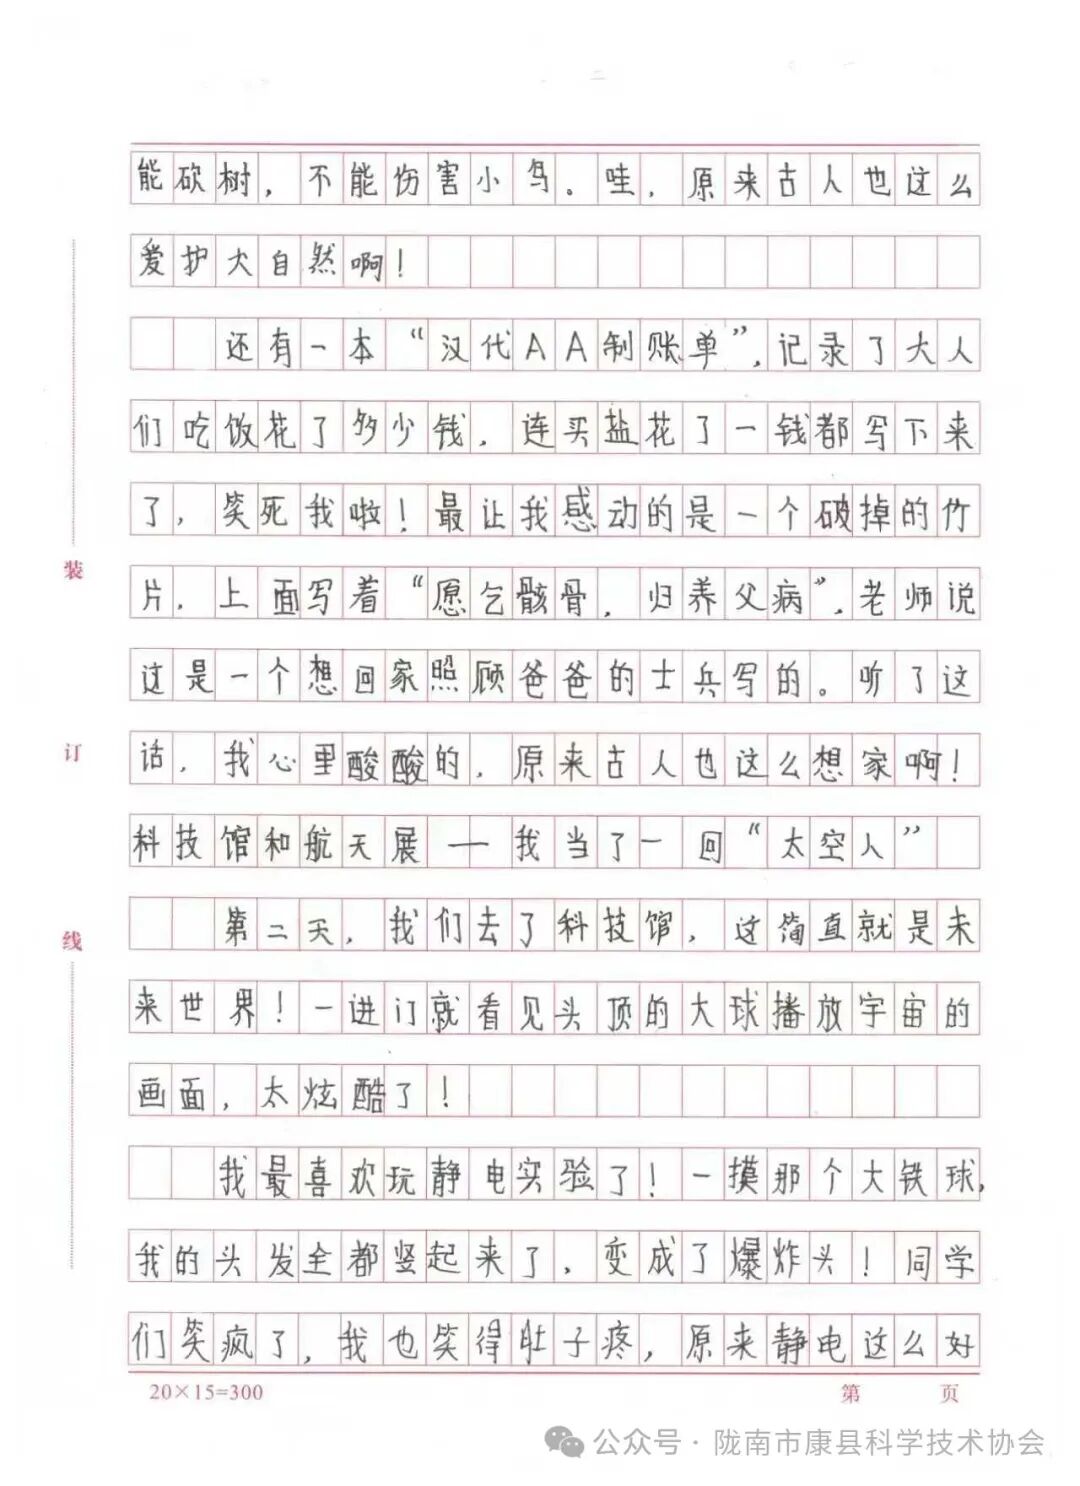 能砍树，不能伤害小鸟。哇，原来古人也这么
爱护大自然啊！
还有一本“汉代AA制账单”，记录了大人
们吃饭花了多少钱，连买盐花了一钱都写下来
了，笑死我啦！最让我感动的是一个破掉的竹
片，上面写着“愿乞骸骨，归养父病”，老师说
这是一个想回家照顾爸爸的士兵写的。听了这
话，我心里酸酸的，原来古人也这么想家啊！
科技馆和航天展——我当了一回“太空人”
第二天，我们去了科技馆，这简直就是未
来世界！一进门就看见头顶的大球播放宇宙的
画面，太炫酷了！
我最喜欢玩静电实验了！一摸那个大铁球，
我的头发全都竖起来了，变成了爆炸头！同学
们笑疯了，我也笑得肚子疼，原来静电这么好
装
订
线
20×15=300
第 页
公众号·陇南市康县科学技术协会